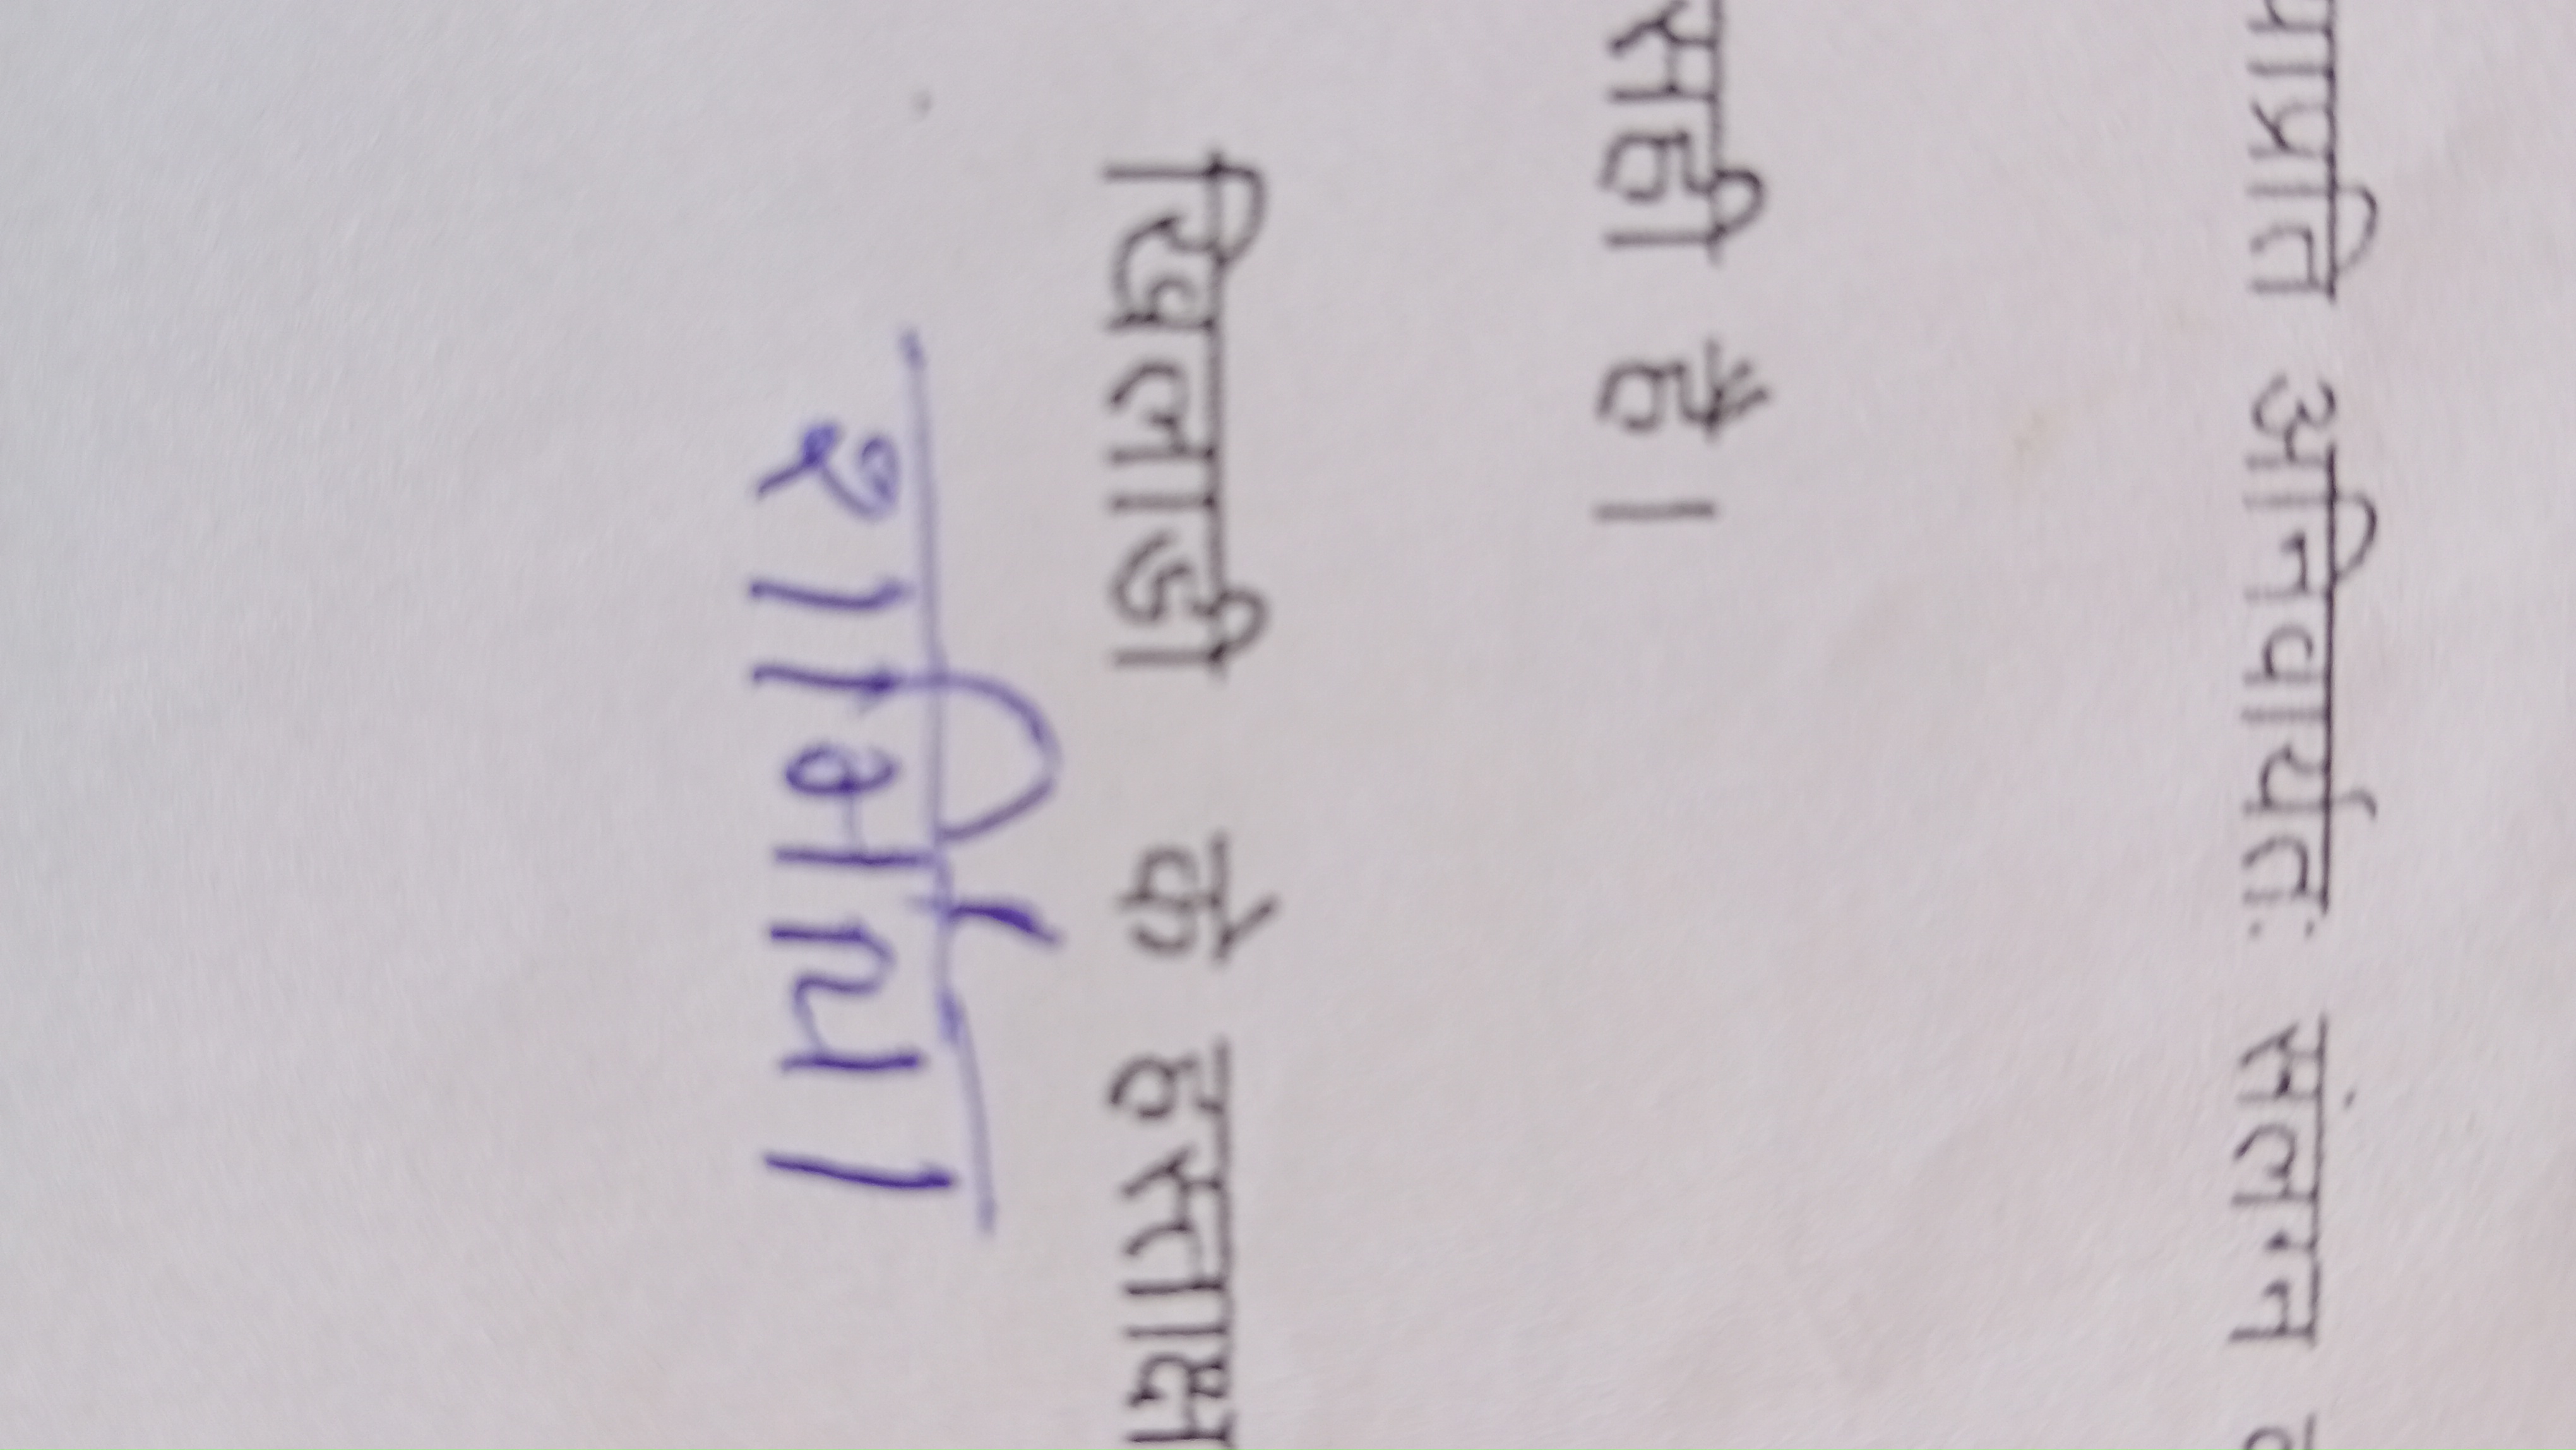 याप्रति अनिवार्यतः संलग्न
सही है।
खिलाडी के हस्ताक्ष